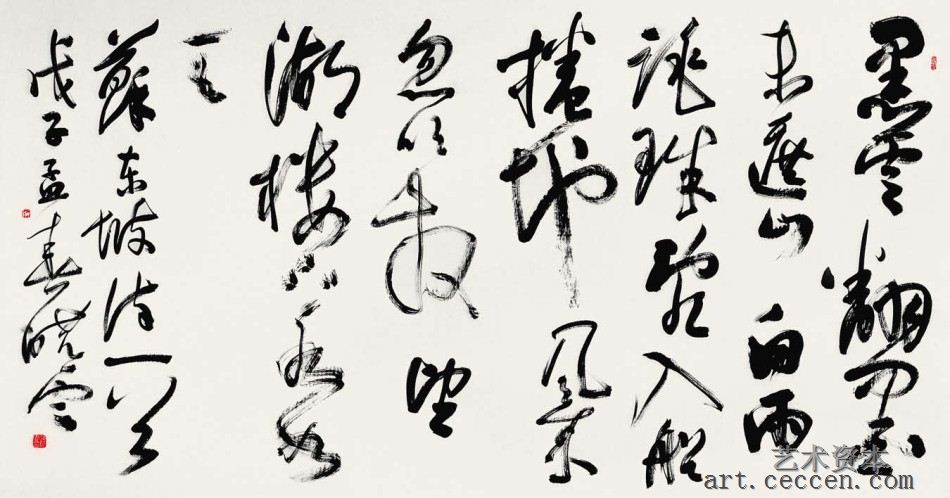 黑雲翻墨
未遮山白雨
跳珠亂入船
捲地風來
忽吹散望
湖樓下水如
天
蘇東坡詩一首
戊子孟春曉雲
艺术资本
art.ceccen.com